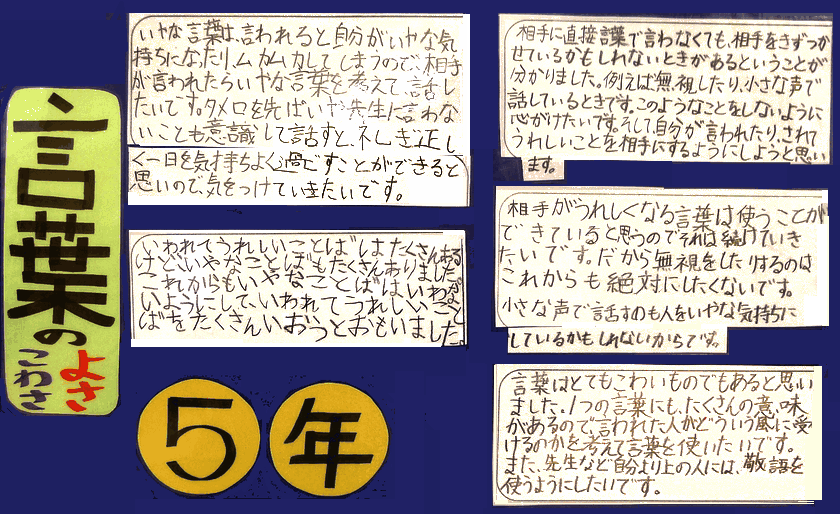 言葉の
よさ
こわさ
いやな言葉は、言われると自分がいやな気
持ちになたり、ムカムカしてしまうので、相手
が言われたらいやな言葉を考えて、話し
たいです。タメ口を先ぱいや、先生に言わな
いことも意識して話すと、礼ぎ正し
く一日を気持ちよく過ごすことができると
思いので、気をつけていきたいです。
いわれてうれしいことばはたくさんある
けど、いやなことばもたくさんありました。
これからもいやなことばはいわな
いようにして、いわれてうれしいこと
ばをたくさんいおうとおもいました。
5年
相手に直接言葉で言わなくても、相手をきずつか
せているかもしれないときがあるということが
分かりました。例えば無視したり、小さな声で
話しているときです。このようなことをしないように
心がけたいです。そして、自分が言われたり、されて
うれしいことを相手にするようにしようと思い
ます。
相手がうれしくなる言葉は使うことが
できていると思うのでそれは続けていき
たいです。だから無視をしたりするのは
これからも絶対にしたくないです。
小さな声で話すのも人をいやな気持ちに
しているかもしれないからです。
言葉はとてもこわいものでもあると思い
ました。1つの言葉にも、たくさんの意味
があるので、言われた人がどういう風に受
けるのかを考えて言葉を使いたいです。
また、先生など自分より上の人には、敬語を
使うようにしたいです。